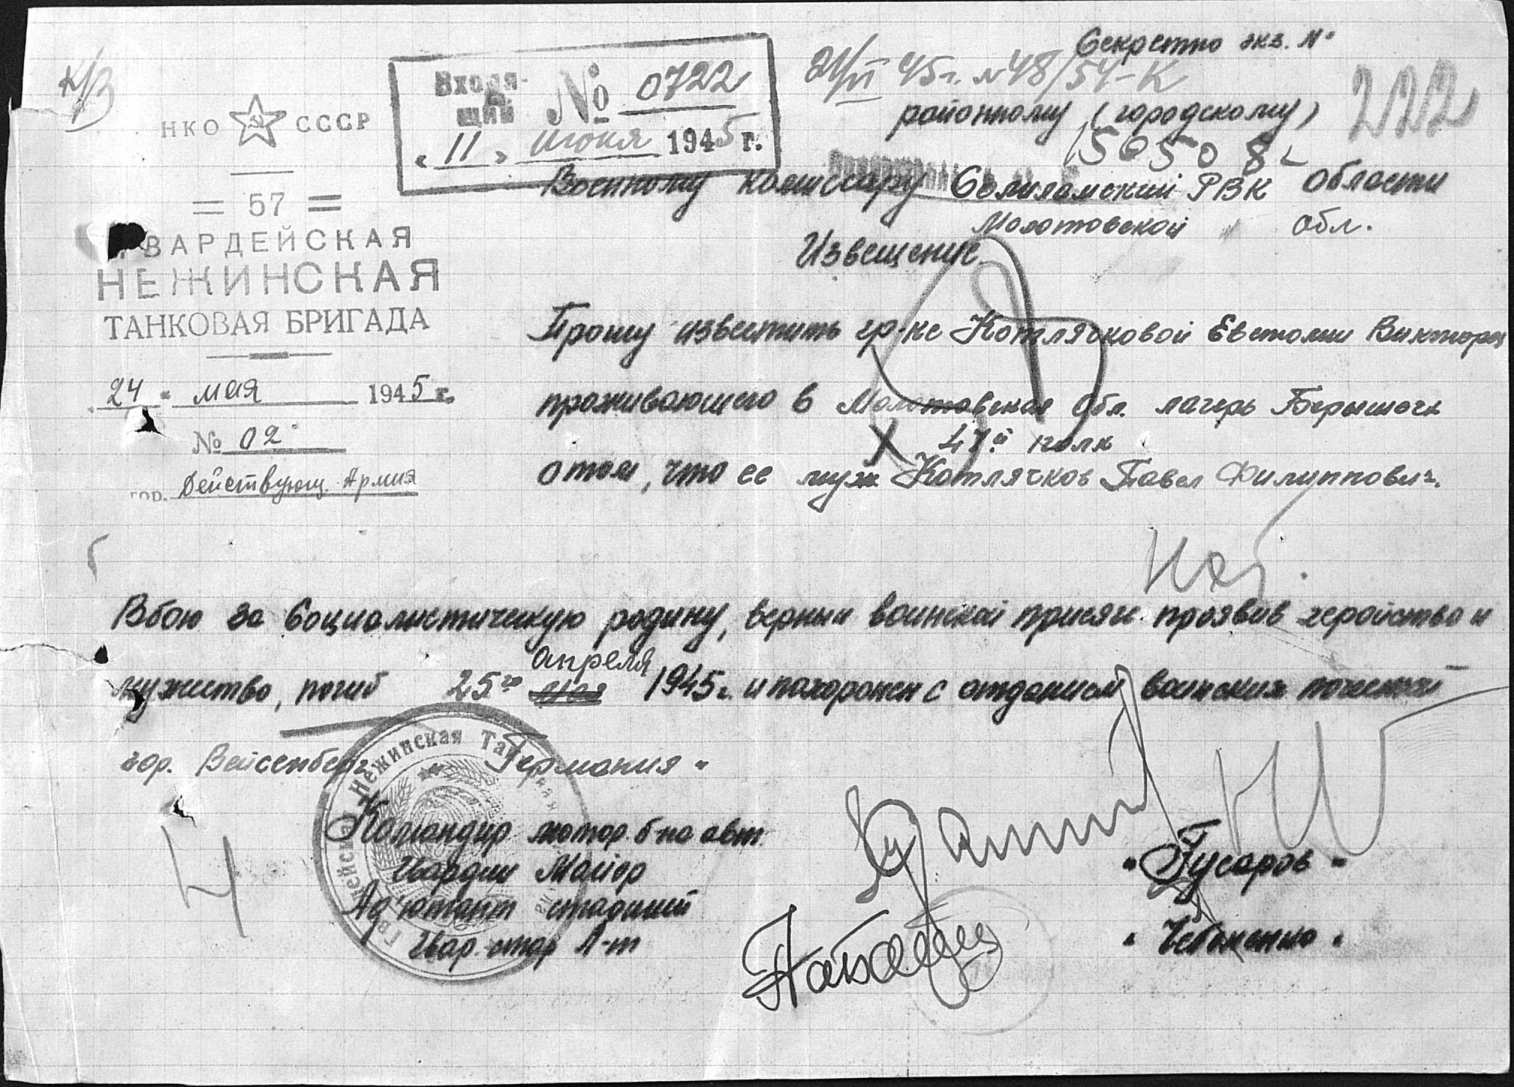 Секретно экз. №
К/В
Входящий № 0722
"11" июня 1945 г.
21/VI 45г. №48/54-К
222
НКО СССР
районному (городскому)
= 57 =
Военному комиссару Соликамский РВК области
Молотовской обл.
ГВАРДЕЙСКАЯ
НЕЖИНСКАЯ
ТАНКОВАЯ БРИГАДА
Извещение.
"24" мая 1945 г.
№ 02
гор. Действующ. Армия
Прошу известить гр-ке Котлячковой Евстолии
проживающего в Молотовская обл. лагерь
47й полк
о том, что ее муж Котлячков Павел Филиппович.
В бою за Социалистическую родину, верный воинской присяге проявив геройство и
мужество, погиб 25го апреля 1945г. и похоронен с отданием воинских почестей
гор. Вейсенберг Германия"
Командир мотор. б-на авт.
Гвардии Майор "Гусаров"
Ад'ютант старший
Гвар. стар Л-т
Гвардейская Нежинская